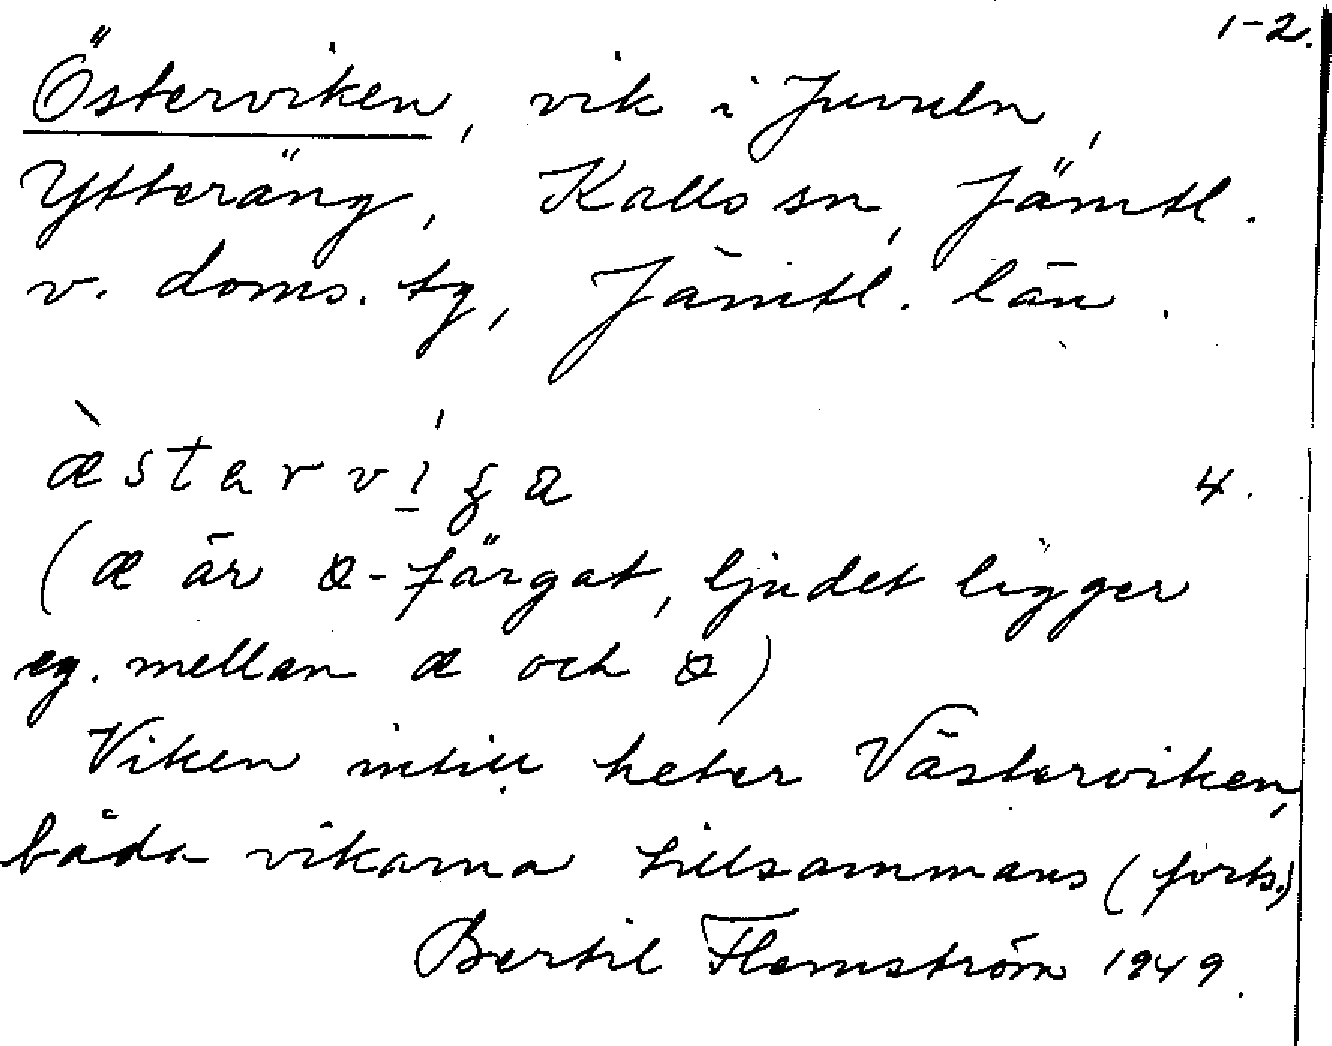 1-2.
Österviken, vik i Juveln,
Ytteräng, Kalls sn, Jämtl.
v. doms. tg, Jämtl. län.
æ̀starví̱ga 4.
(æ är ö-färgat, ljudet ligger
eg. mellan æ och ö)
Viken intill heter Västerviken,
båda vikarna tillsammans (forts.)
Bertil Flemström 1949.